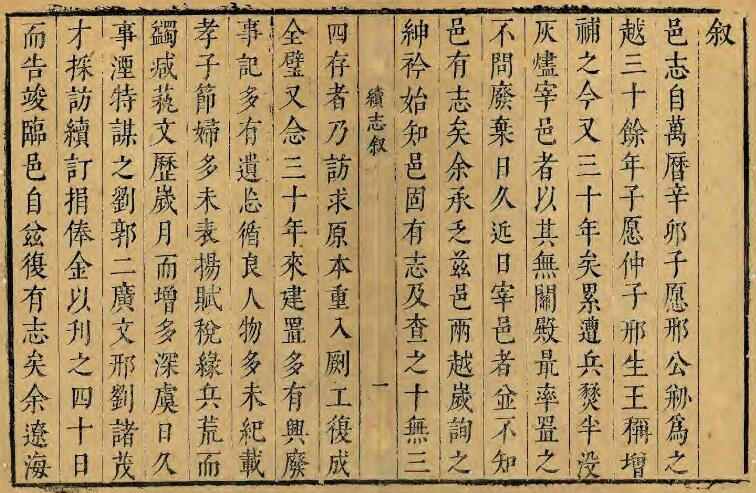 叙
邑志自萬曆辛卯子愿邢公剏爲之
越三十餘年子愿仲子邢生王稱增
補之今又三十年矣累遭兵燹半没
灰燼宰邑者以其無關殿最率置之
不問廢棄日久近日宰邑者並不知
邑有志矣余承乏兹邑兩越嵗詢之
紳衿始知邑固有志及查之十無三
續志叙
一
四存者乃訪求原本重入劂工復成
全璧又念三十年來建置多有興廢
事記多有遺忘循良人物多未紀載
孝子節婦多未表揚賦稅緣兵荒而
蠲减藝文歷嵗月而增多深虞日久
事湮特謀之劉郭二廣文邢劉諸茂
才採訪續訂捐俸金以刋之四十日
而告竣臨邑自兹復有志矣余遼海